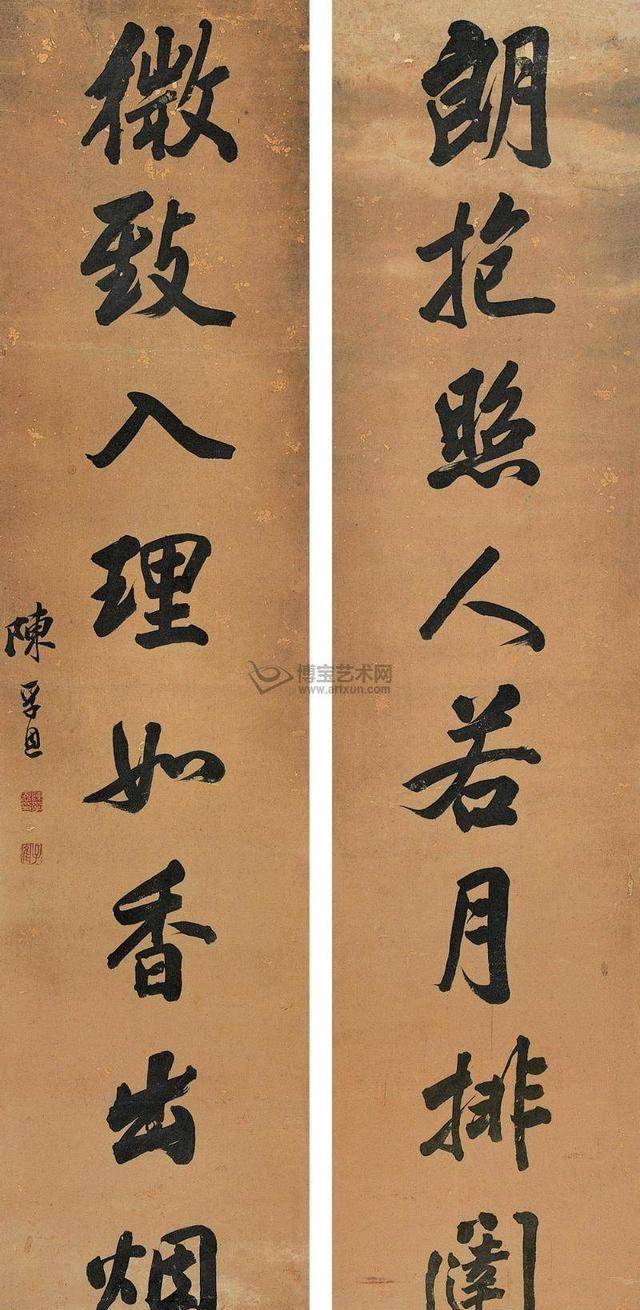 朗抱照人若月排闥
微致入理如香出烟
陳孚恩
博宝艺术网
www.artxun.com